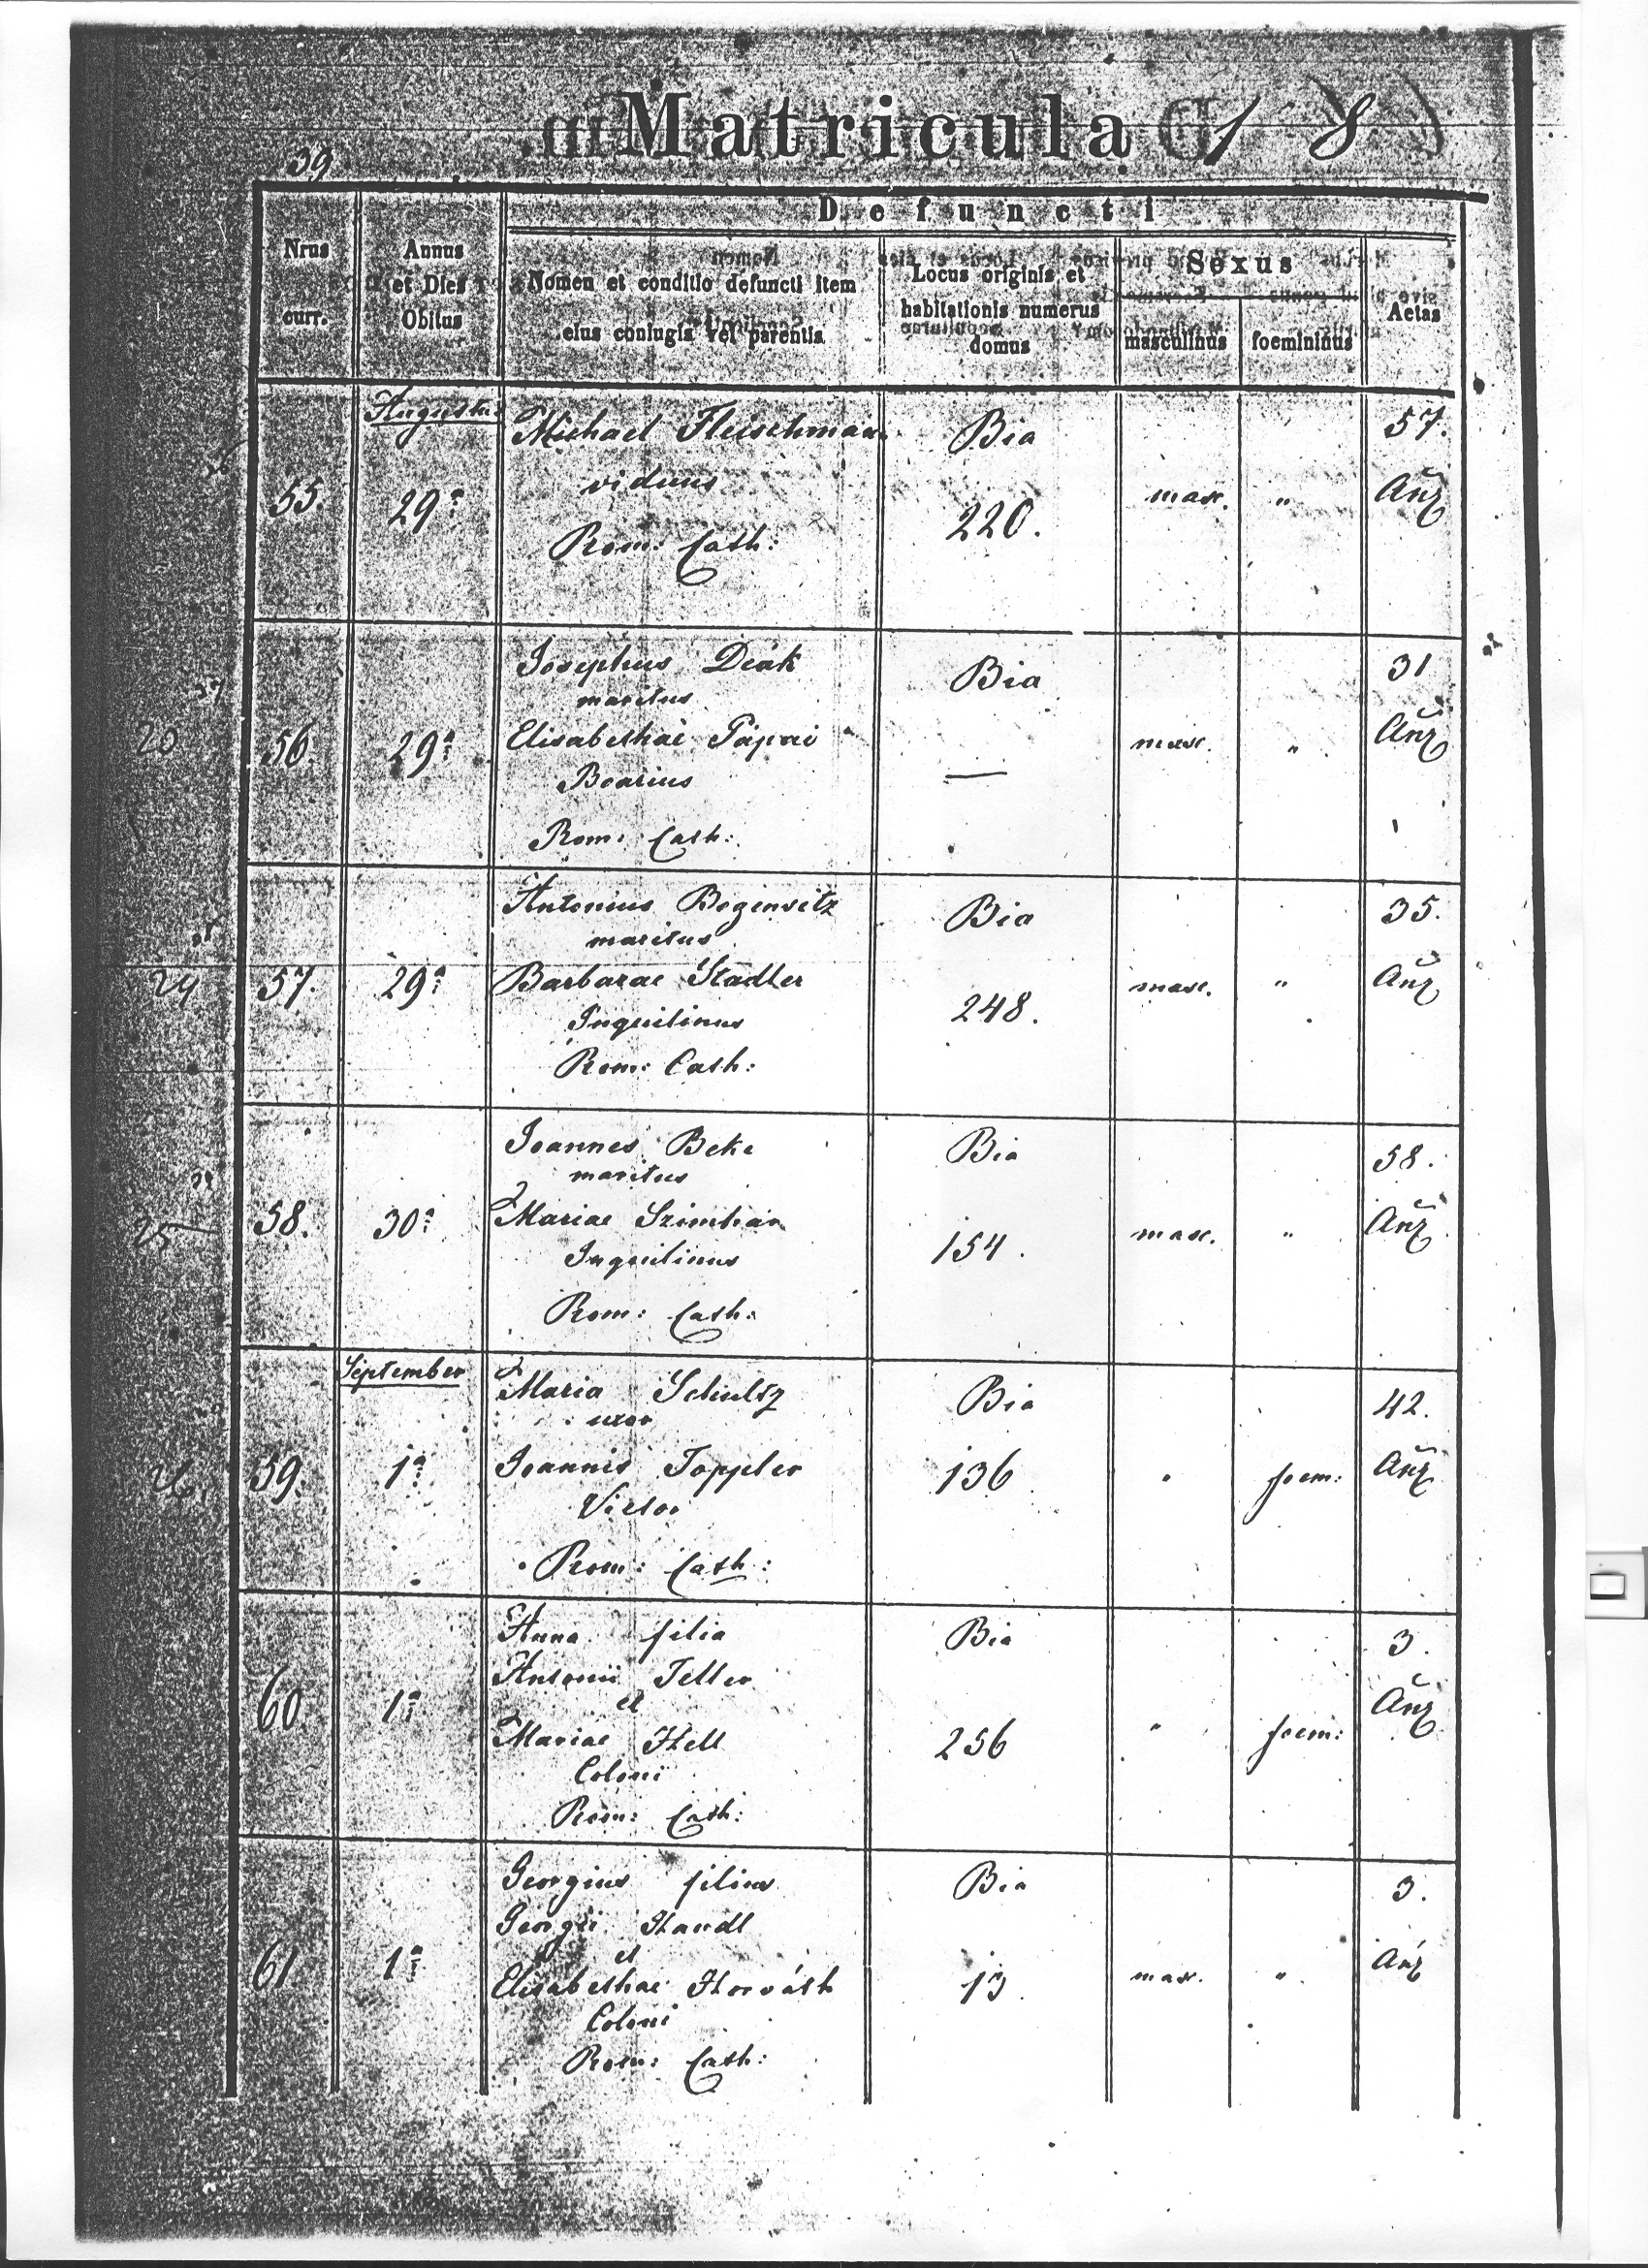 Matricula 1 8
39
Defuncti
Nrus curr.
Annus et Dies Obitus
Nomen et conditio defuncti item eius coniugis vel parentis
Locus originis et habitationis numerus domus
Sexus
masculinus
foemininus
Aetas
Augustus
Michael Fleischman
viduus
Rom: Cath:
55.
29a
Bia
220.
masc.
"
57.
Anz
Josephus Deák
maritus
Elisabethae Pápai
Boarius
Rom: Cath:
20
56.
29a
Bia
—
masc.
"
31
Anz
Antonius Boginsitz
maritus
Barbarae Stadler
Inquilinus
Rom: Cath:
24
57.
29a
Bia
248.
masc.
"
35.
Anz
Joannes Beke
maritus
Mariae
Inquilinus
Rom: Cath:
25
58.
30a
Bia
154.
masc.
"
58.
Anz
September
Maria Schultz
uxor
Joannis Toppler
Vietor
Rom: Cath:
26.
59.
1a
Bia
136
foem:
42.
Anz
Anna filia
Antonii Teller
et
Mariae Hell
Coloni
Rom: Cath:
60.
1a
Bia
256
"
foem:
3.
Anz
Georgius filius
Georgii Handl
et
Elisabethae Horváth
Coloni
Rom: Cath:
61
1a
Bia
13.
masc.
"
3.
Anz